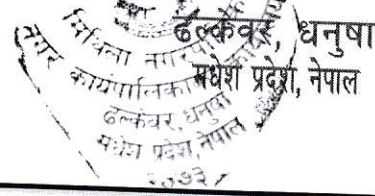 ढल्केवर, धनुषा
मधेश प्रदेश, नेपाल
मिथिला नगरपालिका
नगर कार्यपालिका
ढल्केवर, धनुषा
मधेश प्रदेश, नेपाल
२०७३